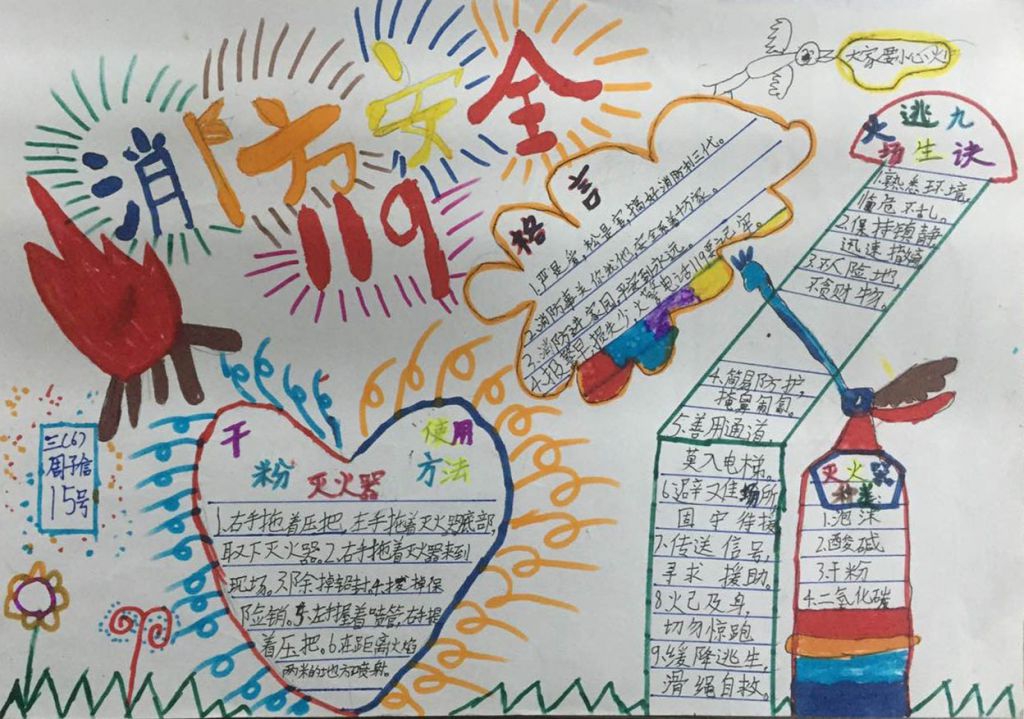 消防安全
119
大家要小心火
格言
1.严是爱,松是害,搞好消防利三代。
2.消防事关你我他,安全
3.消防进家园,平安到永远。
4.报警早,损失少,火警电话119要记牢。
火场逃生九诀
1.熟悉环境,
临危不乱。
2.保持镇静,
迅速撤离
3.不入险地,
不贪财物。
4.简易防护,
掩鼻匍匐。
5.善用通道
莫入电梯。
6.避难场所
固守待援
7.传送信号,
寻求援助。
8.火已及身,
切勿惊跑
9.缓降逃生,
滑绳自救。
三(6)
周子信
15号
干粉灭火器使用方法
1.右手拖着压把,左手拖着灭火器底部,
取下灭火器。2.右手拖着灭火器来到
现场。3.除掉铅封4.拔掉保
险销。5.左手握着喷管,右手提
着压把。6.在距离火焰
两米的地方喷射。
灭火器
种类
1.泡沫
2.酸碱
3.干粉
4.二氧化碳